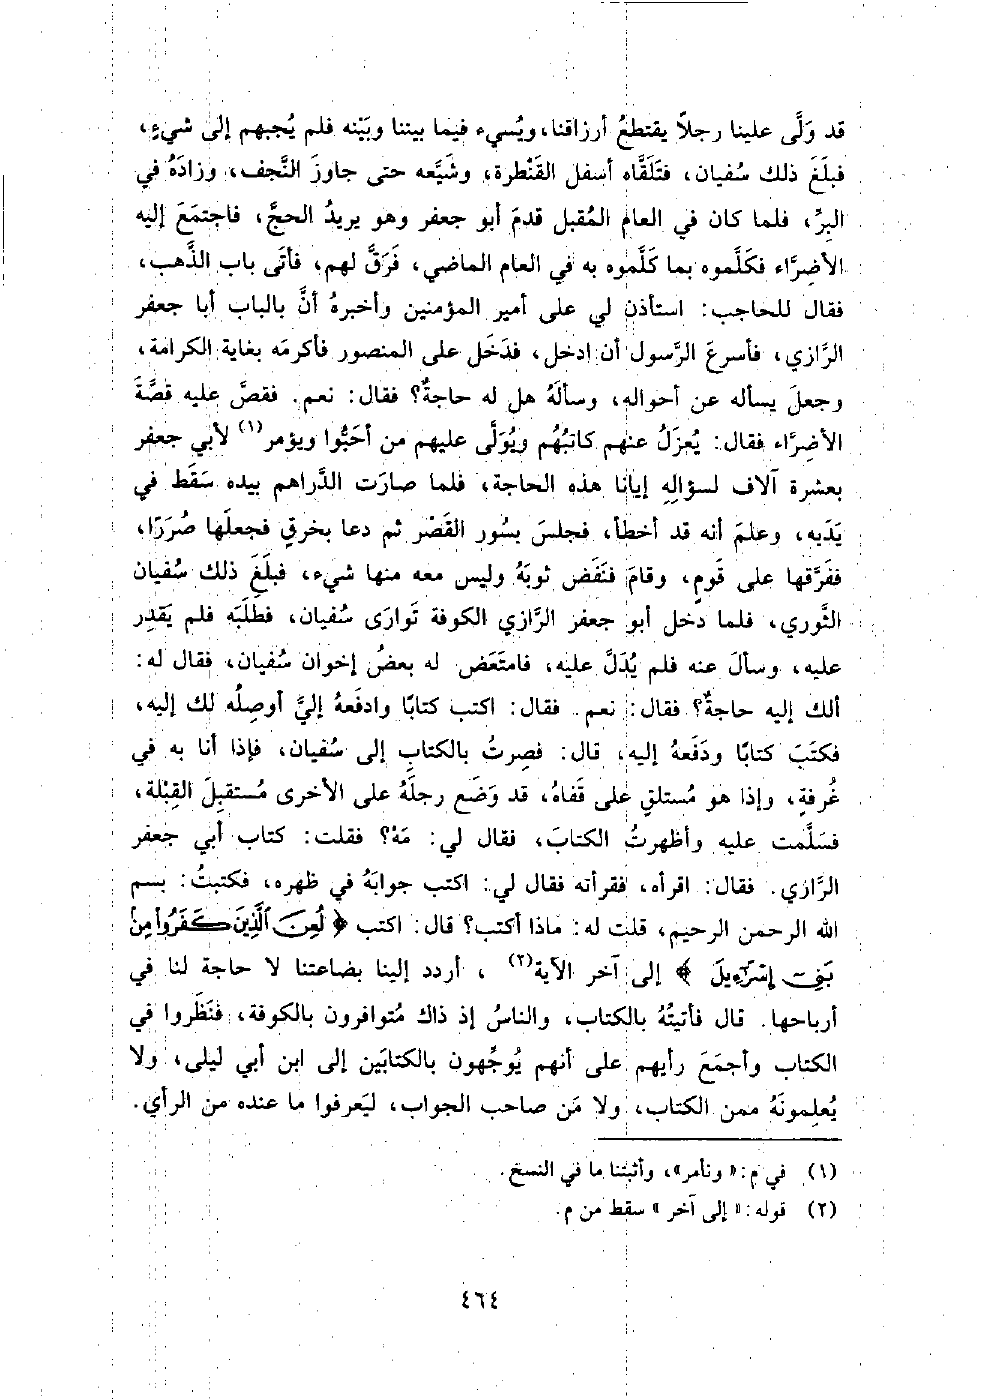 قد وَلَّى علينا رجلاً يقتطعُ أرزاقنا، ويُسيء فيما بيننا وبَيْنه فلم يُجبهم إلى شيءٍ،
فبلَغَ ذلك سُفيان، فتَلَقَّاه أسفل القَنْطرة، وشَيَّعه حتى جاوزَ النَّجف، وزادَهُ في
البِرِّ، فلما كان في العام المُقبل قدمَ أبو جعفر وهو يريدُ الحجَّ، فاجتمَعَ إليه
الأضِرَّاء فكَلَّموه بما كَلَّموه به في العام الماضي، فَرَقَّ لهم، فأتَى باب الذَّهب،
فقال للحاجب: استأذن لي على أمير المؤمنين وأخبرهُ أنَّ بالباب أبا جعفر
الرَّازي، فأسرعَ الرَّسول أن ادخل، فدَخَل على المنصور فأكرمَه بغاية الكرامة،
وجعلَ يسأله عن أحواله، وسألَهُ هل له حاجةٌ؟ فقال: نعم. فقصَّ عليه قصَّةَ
الأضِرَّاء فقال: يُعزَلُ عنهم كاتبُهُم ويُوَلَّى عليهم من أحَبُّوا ويؤمر(١) لأبي جعفر
بعشرة آلاف لسؤالِهِ إيانا هذه الحاجة، فلما صارَت الدَّراهم بيده سَقَط في
يَدَيه، وعلمَ أنه قد أخطأ، فجلسَ بسُور القَصْر ثم دعا بخرقٍ فجعلَها صُرَرًا،
ففَرَّقها على قَومٍ، وقامَ فنَفَض ثوبَهُ وليس معه منها شيء، فبلَغَ ذلك سُفيان
الثَّوري، فلما دخل أبو جعفر الرَّازي الكوفة تَوارَى سُفيان، فطلَبَه فلم يَقدِر
عليه، وسألَ عنه فلم يُدَلَّ عليه، فامتَعَض له بعضُ إخوان سُفيان، فقال له:
ألك إليه حاجةٌ؟ فقال: نعم. فقال: اكتب كتابًا وادفَعهُ إليَّ أوصِلُه لك إليه،
فكتَبَ كتابًا ودَفَعهُ إليه، قال: فصِرتُ بالكتابِ إلى سُفيان، فإذا أنا به في
غُرفةٍ، وإذا هو مُستلقٍ على قَفاهُ، قد وَضَع رجلَهُ على الأخرى مُستقبِلَ القِبْلة،
فسَلَّمت عليه وأظهرتُ الكتابَ، فقال لي: مَهْ؟ فقلت: كتاب أبي جعفر
الرَّازي. فقال: اقرأه، فقرأته فقال لي: اكتب جوابَهُ في ظهره، فكتبتُ: بسم
الله الرحمن الرحيم، قلت له: ماذا أكتب؟ قال: اكتب ﴿ لُعِنَ ٱلَّذِينَ كَفَرُوا۟ مِنۢ
بَنِىٓ إِسْرَٰٓءِيلَ ﴾ إلى آخر الآية(٢) ، أردد إلينا بضاعتنا لا حاجة لنا في
أرباحها. قال فأتيتُهُ بالكتاب، والناسُ إذ ذاك مُتوافرون بالكوفة، فنَظَروا في
الكتاب وأجمَعَ رأيهم على أنهم يُوجِّهون بالكتابَين إلى ابن أبي ليلى، ولا
يُعلِمونَهُ ممن الكتاب، ولا مَن صاحب الجواب، ليَعرفوا ما عنده من الرأي.
(١) في م: «ونأمر»، وأثبتنا ما في النسخ.
(٢) قوله: «إلى آخر» سقط من م.
٤٦٤